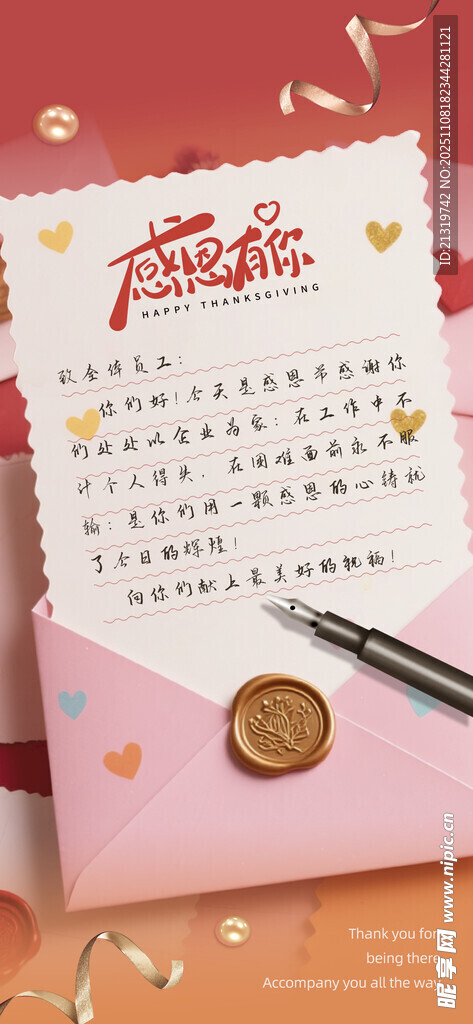 感恩有你
HAPPY THANKSGIVING
致全体员工：
你们好！今天是感恩节感谢你
们处处以企业为家：在工作中不
计个人得失，在困难面前永不服
输：是你们用一颗感恩的心铸就
了今日的辉煌！
向你们献上最美好的祝福！
Thank you for
being there
Accompany you all the way
ID:21319742 NO:20251108182344281121
昵享网 www.nipic.cn